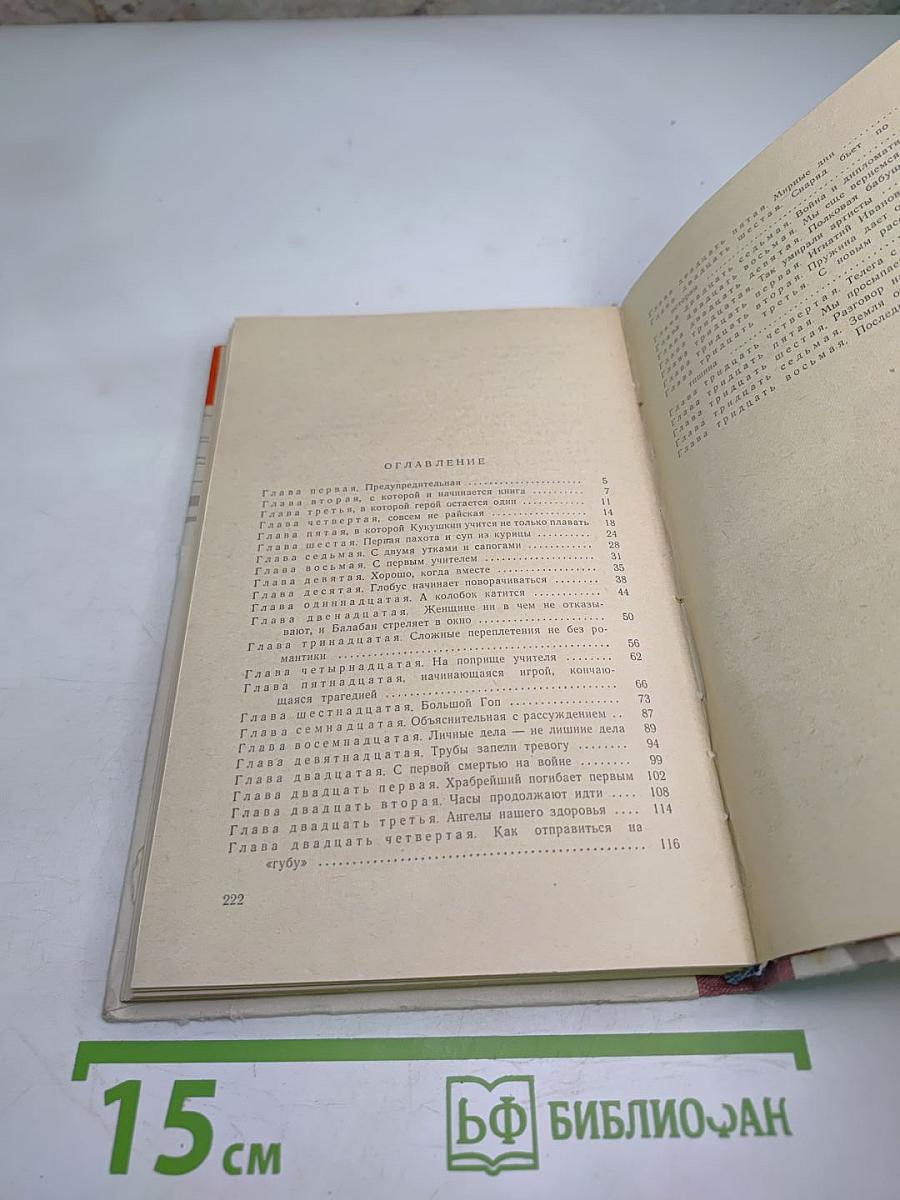 ОГЛАВЛЕНИЕ
Глава первая. Предупредительная .................... 5
Глава вторая, с которой и начинается книга .......... 7
Глава третья, в которой герой остается один .......... 11
Глава четвертая, совсем не райская .................. 14
Глава пятая, в которой Кукушкин учится не только плавать 18
Глава шестая. Первая пахота и суп из курицы .......... 24
Глава седьмая. С двумя утками и сапогами ............ 28
Глава восьмая. С первым учителем .................. 31
Глава девятая. Хорошо, когда вместе ................ 35
Глава десятая. Глобус начинает поворачиваться ........ 38
Глава одиннадцатая. А колобок катится ............ 44
Глава двенадцатая. Женщине ни в чем не отказы-
вают, и Балабан стреляет в окно .................... 50
Глава тринадцатая. Сложные переплетения не без ро-
мантики ........................................ 56
Глава четырнадцатая. На поприще учителя ........ 62
Глава пятнадцатая, начинающаяся игрой, кончаю-
щаяся трагедией .................................. 66
Глава шестнадцатая. Большой Гоп ................ 73
Глава семнадцатая. Объяснительная с рассуждением .. 87
Глава восемнадцатая. Личные дела — не лишние дела 89
Глава девятнадцатая. Трубы запели тревогу ........ 94
Глава двадцатая. С первой смертью на войне ........ 99
Глава двадцать первая. Храбрейший погибает первым 102
Глава двадцать вторая. Часы продолжают идти .... 108
Глава двадцать третья. Ангелы нашего здоровья .... 114
Глава двадцать четвертая. Как отправиться на
«губу» ............................................ 116
222
Глава двадцать пятая. Мирные дни
Глава двадцать шестая. Снаряд бьет по
Глава двадцать седьмая. Война и
Глава двадцать восьмая. Мы еще вернемся
Глава двадцать девятая. Полковая
Глава тридцатая. Так умирали артисты
Глава тридцать первая. Игнатий
Глава тридцать вторая. Пружина дает
Глава тридцать третья. С новым
тишина
Глава тридцать четвертая. Телега с
Глава тридцать пятая. Мы
Глава тридцать шестая. Разговор
Глава тридцать седьмая. Земля
Глава тридцать восьмая.
15 см
БФ БИБЛИОФАН